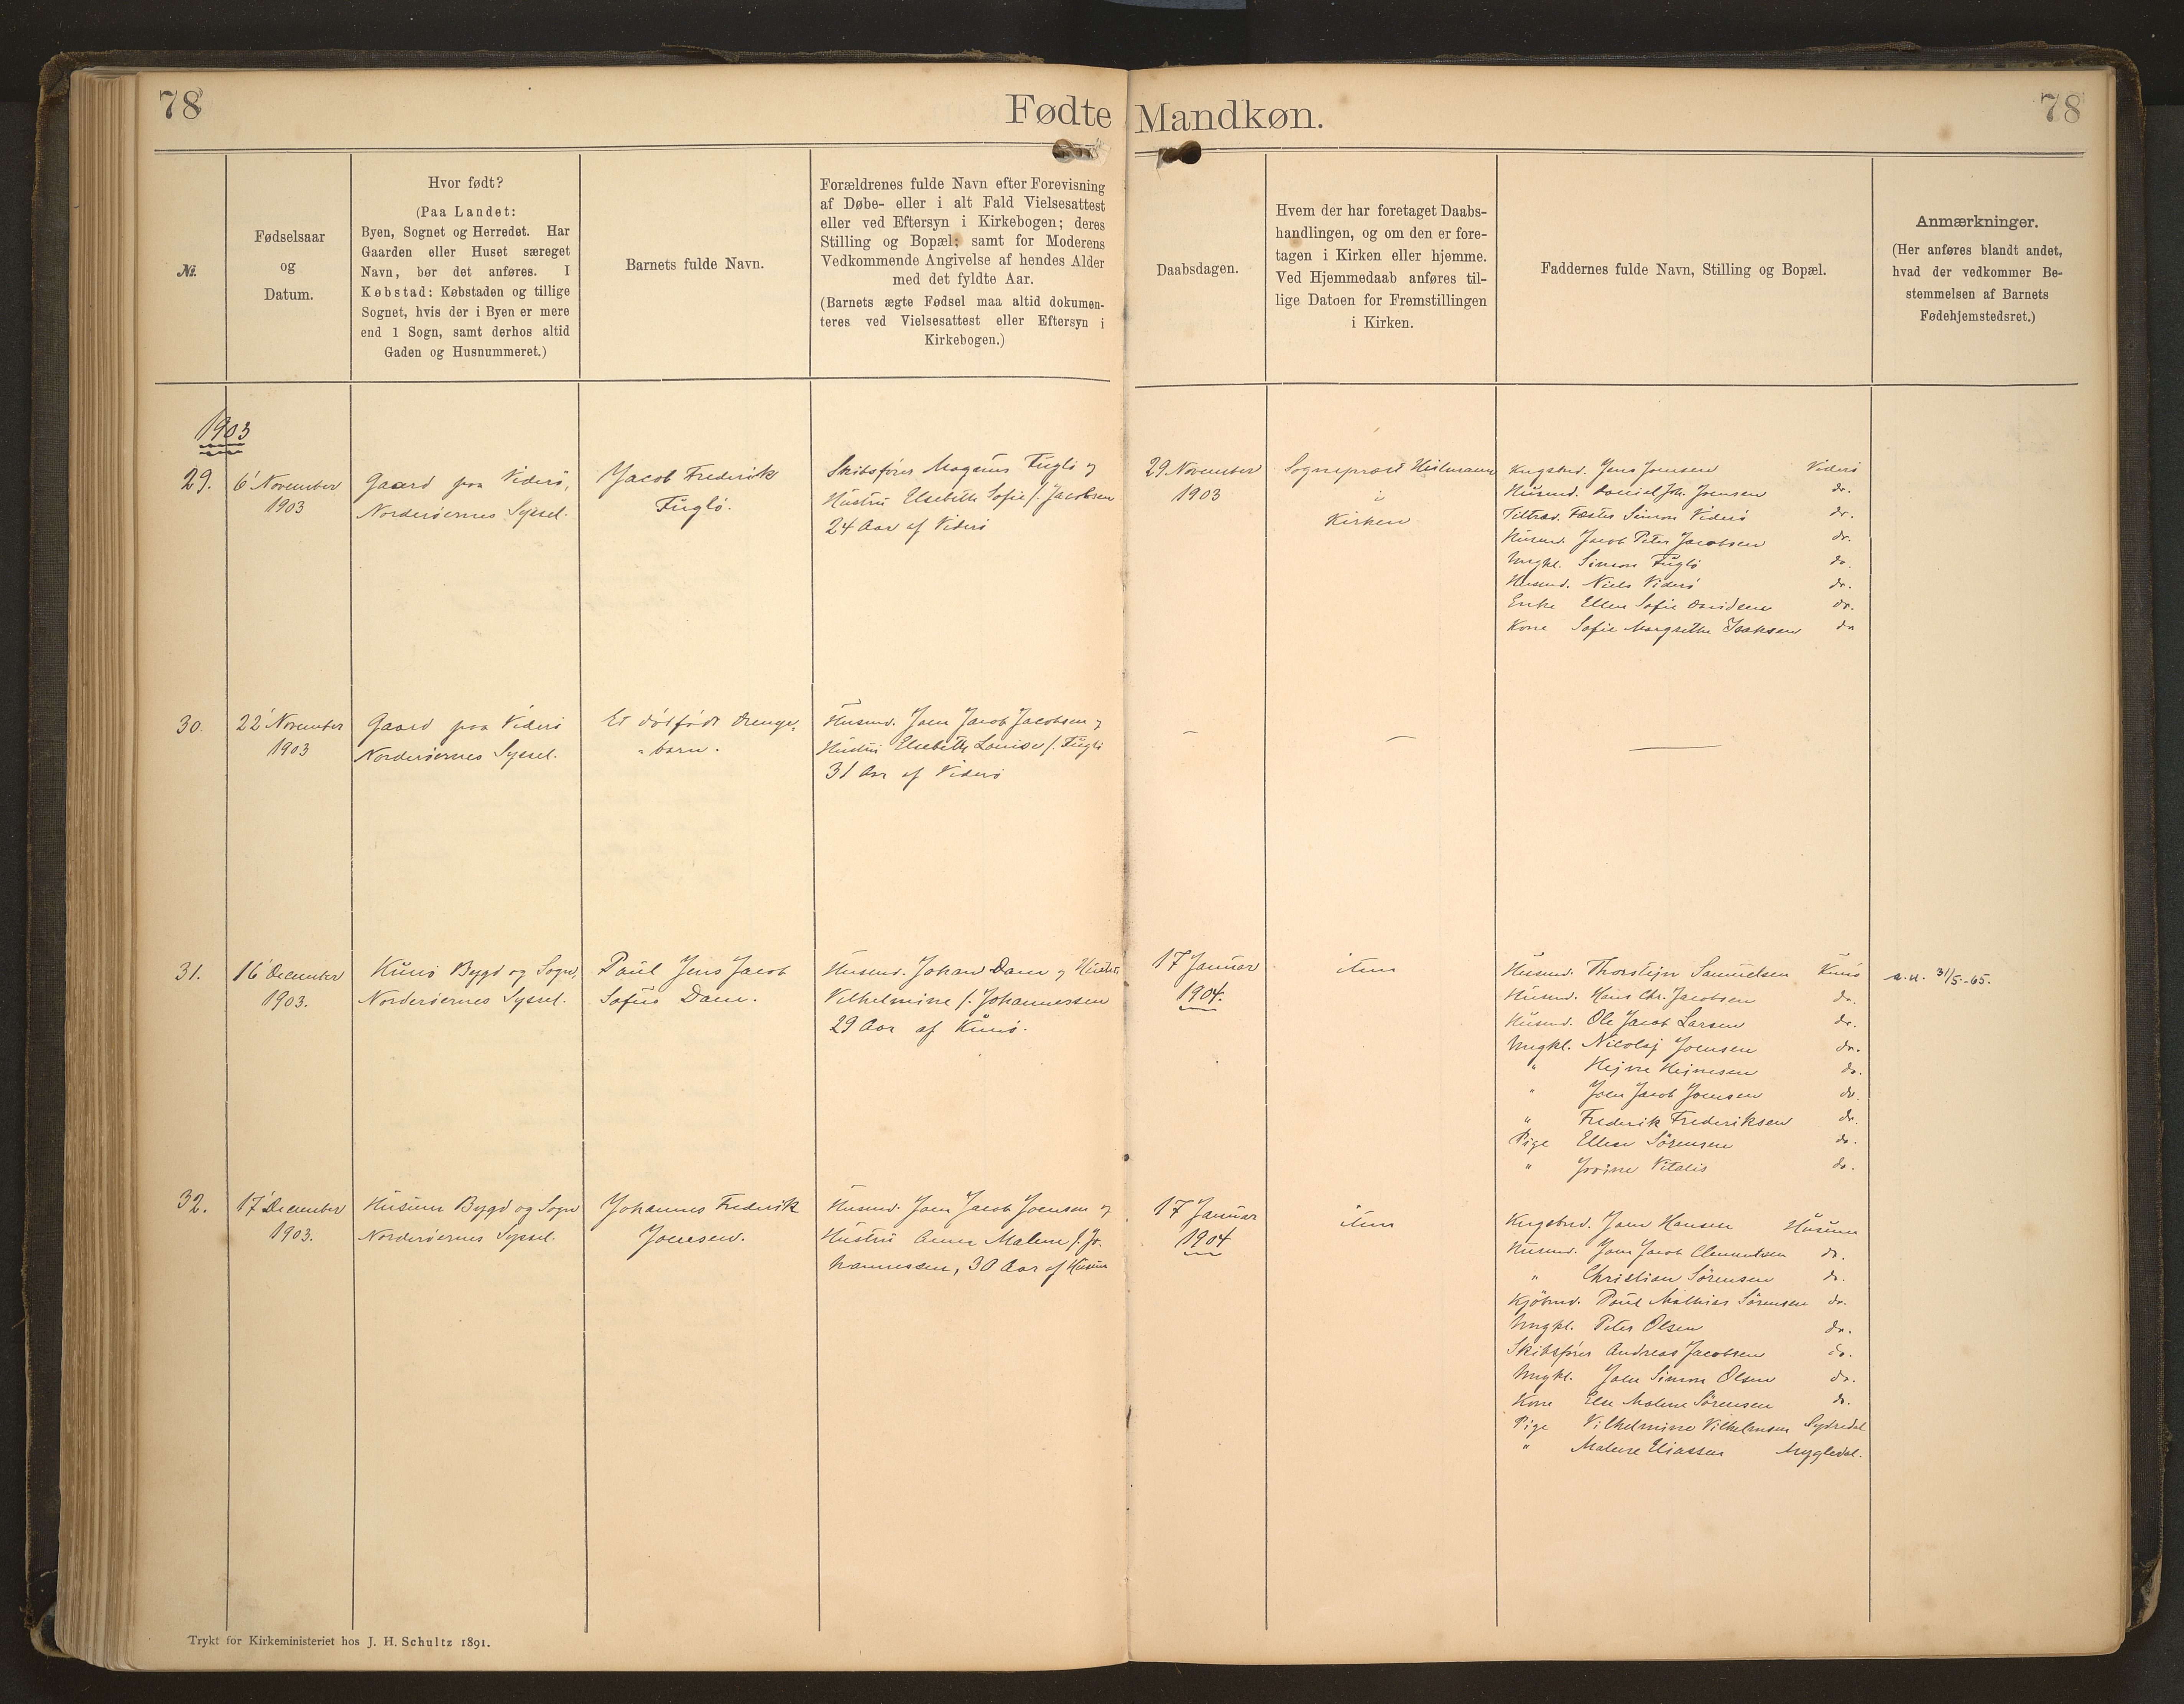 78
Fødte Mandkøn.
78
№.
Fødselsaar
og
Datum.
Hvor født?
(Paa Landet:
Byen, Sognet og Herredet. Har
Gaarden eller Huset særeget
Navn, bør det anføres. I
Købstad: Købstaden og tillige
Sognet, hvis der i Byen er mere
end 1 Sogn, samt derhos altid
Gaden og Husnummeret.)
Barnets fulde Navn.
Forældrenes fulde Navn efter Forevisning
af Døbe- eller i alt Fald Vielsesattest
eller ved Eftersyn i Kirkebogen; deres
Stilling og Bopæl; samt for Moderens
Vedkommende Angivelse af hendes Alder
med det fyldte Aar.
(Barnets ægte Fødsel maa altid dokumen-
teres ved Vielsesattest eller Eftersyn i
Kirkebogen.)
Daabsdagen.
Hvem der har foretaget Daabs-
handlingen, og om den er fore-
tagen i Kirken eller hjemme.
Ved Hjemmedaab anføres til-
lige Datoen for Fremstillingen
i Kirken.
Faddernes fulde Navn, Stilling og Bopæl.
Anmærkninger.
(Her anføres blandt andet,
hvad der vedkommer Be-
stemmelsen af Barnets
Fødehjemstedsret.)
1903
29.
6' November
1903
Gaard paa Viderø,
Norderøernes Syssel.
Jacob Frederik
Fuglø.
Skibsfører Magnus Fuglø og
Hustru Elsebeth Sofie f. Jacobsen
24 Aar af Viderø
29 November
1903
Sognepræst Heilmann
i
Kirken
Kngsbnd. Jens Joensen Viderø
Husmd. Daniel Joh. Joensen do.
Tiltræd. Fæster Simon Viderø do.
Husmd. Jacob Peter Jacobsen do.
Ungkl. Simon Fuglø do.
Husmd. Niels Viderø do.
Enke Ellen Sofie Davidsen do.
Kone Sofie Margrethe Isaksen do
30.
22' November
1903
Gaard paa Viderø
Norderøernes Syssel.
Et dødfødt Drenge-
barn.
Husmd. Joen Jacob Jacobsen og
Hustru Elsebeth Louise f. Fuglø
31 Aar af Viderø
–
–
—
31.
16' December
1903.
Kunø Bygd og Sogn,
Norderøernes Syssel.
Poul Jens Jacob
Sofus Dam.
Husmd. Johan Dam og Hustru
Vilhelmine f. Johannessen
29 Aar af Kunø.
17 Januar
1904.
item
Husmd. Thorstejn Samuelsen Kunø
Husmd. Hans Chr. Jacobsen do.
Husmd. Ole Jacob Larsen do.
Ungkl. Nicolaj Joensen do.
" Hejne Hejnesen do.
" Joen Jacob Joensen do.
" Frederik Frederiksen do.
Pige Ellen Sørensen do.
" Vitalis do.
31/5-65.
32.
17' December
1903.
Husum Bygd og Sogn
Norderøernes Syssel.
Johannes Frederik
Joensen.
Husmd. Joen Jacob Joensen og
Hustru Anna Malene f. Jo-
hannessen, 30 Aar af Husum
17 Januar
1904
item
Kngsbnd. Joen Hansen Husum
Husmd. Joen Jacob Clementsen do.
" Christian Sørensen do.
Kjøbmd. Poul Mathias Sørensen do.
Ungkl. Peter Olsen do.
Skibsfører Andreas Jacobsen do.
Ungkl. Joen Simon Olsen do.
Kone Else Malene Sørensen do.
Pige Vilhelmine Vilhelmsen Sydredal
" Malene Eliassen Mygledal.
Trykt for Kirkeministeriet hos J. H. Schultz 1891.